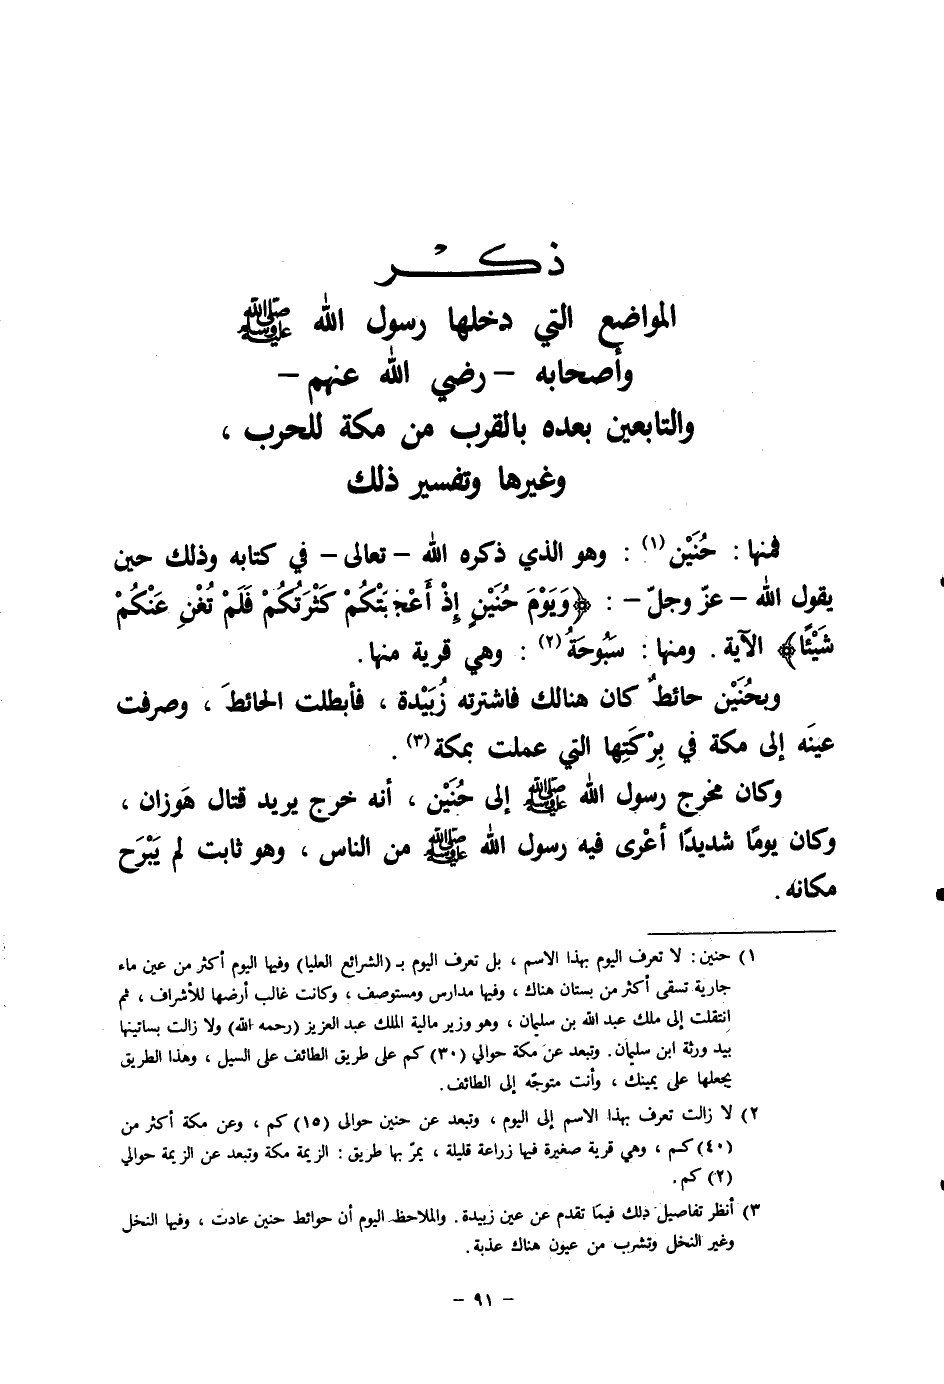 ذكر
المواضع التي دخلها رسول الله ﷺ
وأصحابه – رضي الله عنهم –
والتابعين بعده بالقرب من مكة للحرب ،
وغيرها وتفسير ذلك
فمنها : حُنَيْن (١) : وهو الذي ذكره الله – تعالى – في كتابه وذلك حين
يقول الله – عزّ وجلّ – : ﴿وَيَوْمَ حُنَيْنٍ إِذْ أَعْجَبَتْكُمْ كَثْرَتُكُمْ فَلَمْ تُغْنِ عَنْكُمْ
شَيْئًا﴾ الآية . ومنها : سَبُوحَةُ (٢) : وهي قرية منها .
وبحُنَيْن حائطٌ كان هنالك فاشترته زُبَيْدة ، فأبطلت الحائطَ ، وصرفت
عينَه إلى مكة في بِرْكَتِها التي عملت بمكة (٣) .
وكان مخرج رسول الله ﷺ إلى حُنَيْن ، أنه خرج يريد قتال هَوزان ،
وكان يومًا شديدًا أعْرى فيه رسول الله ﷺ من الناس ، وهو ثابت لم يَبْرَح
مكانه .
١) حنين : لا تعرف اليوم بهذا الاسم ، بل تعرف اليوم بـ (الشرائع العليا) وفيها اليوم أكثر من عين ماء
جارية تسقى أكثر من بستان هناك ، وفيها مدارس ومستوصف ، وكانت غالب أرضها للأشراف ، ثم
انتقلت إلى ملك عبد الله بن سليمان ، وهو وزير مالية الملك عبد العزيز (رحمه الله) ولا زالت بساتينها
بيد ورثة ابن سليمان . وتبعد عن مكة حوالي (٣٠) كم على طريق الطائف على السيل ، وهذا الطريق
يجعلها على يمينك ، وأنت متوجّه إلى الطائف .
٢) لا زالت تعرف بهذا الاسم إلى اليوم ، وتبعد عن حنين حوالى (١٥) كم ، وعن مكة أكثر من
(٤٠) كم ، وهي قرية صغيرة فيها زراعة قليلة ، يمرّ بها طريق : الزيمة مكة وتبعد عن الزيمة حوالي
(٢) كم .
٣) أنظر تفاصيل ذلك فيمَا تقدم عن عين زبيدة . والملاحظ اليوم أن حوائط حنين عادت ، وفيها النخل
وغير النخل وتشرب من عيون هناك عذبة .
– ٩١ –